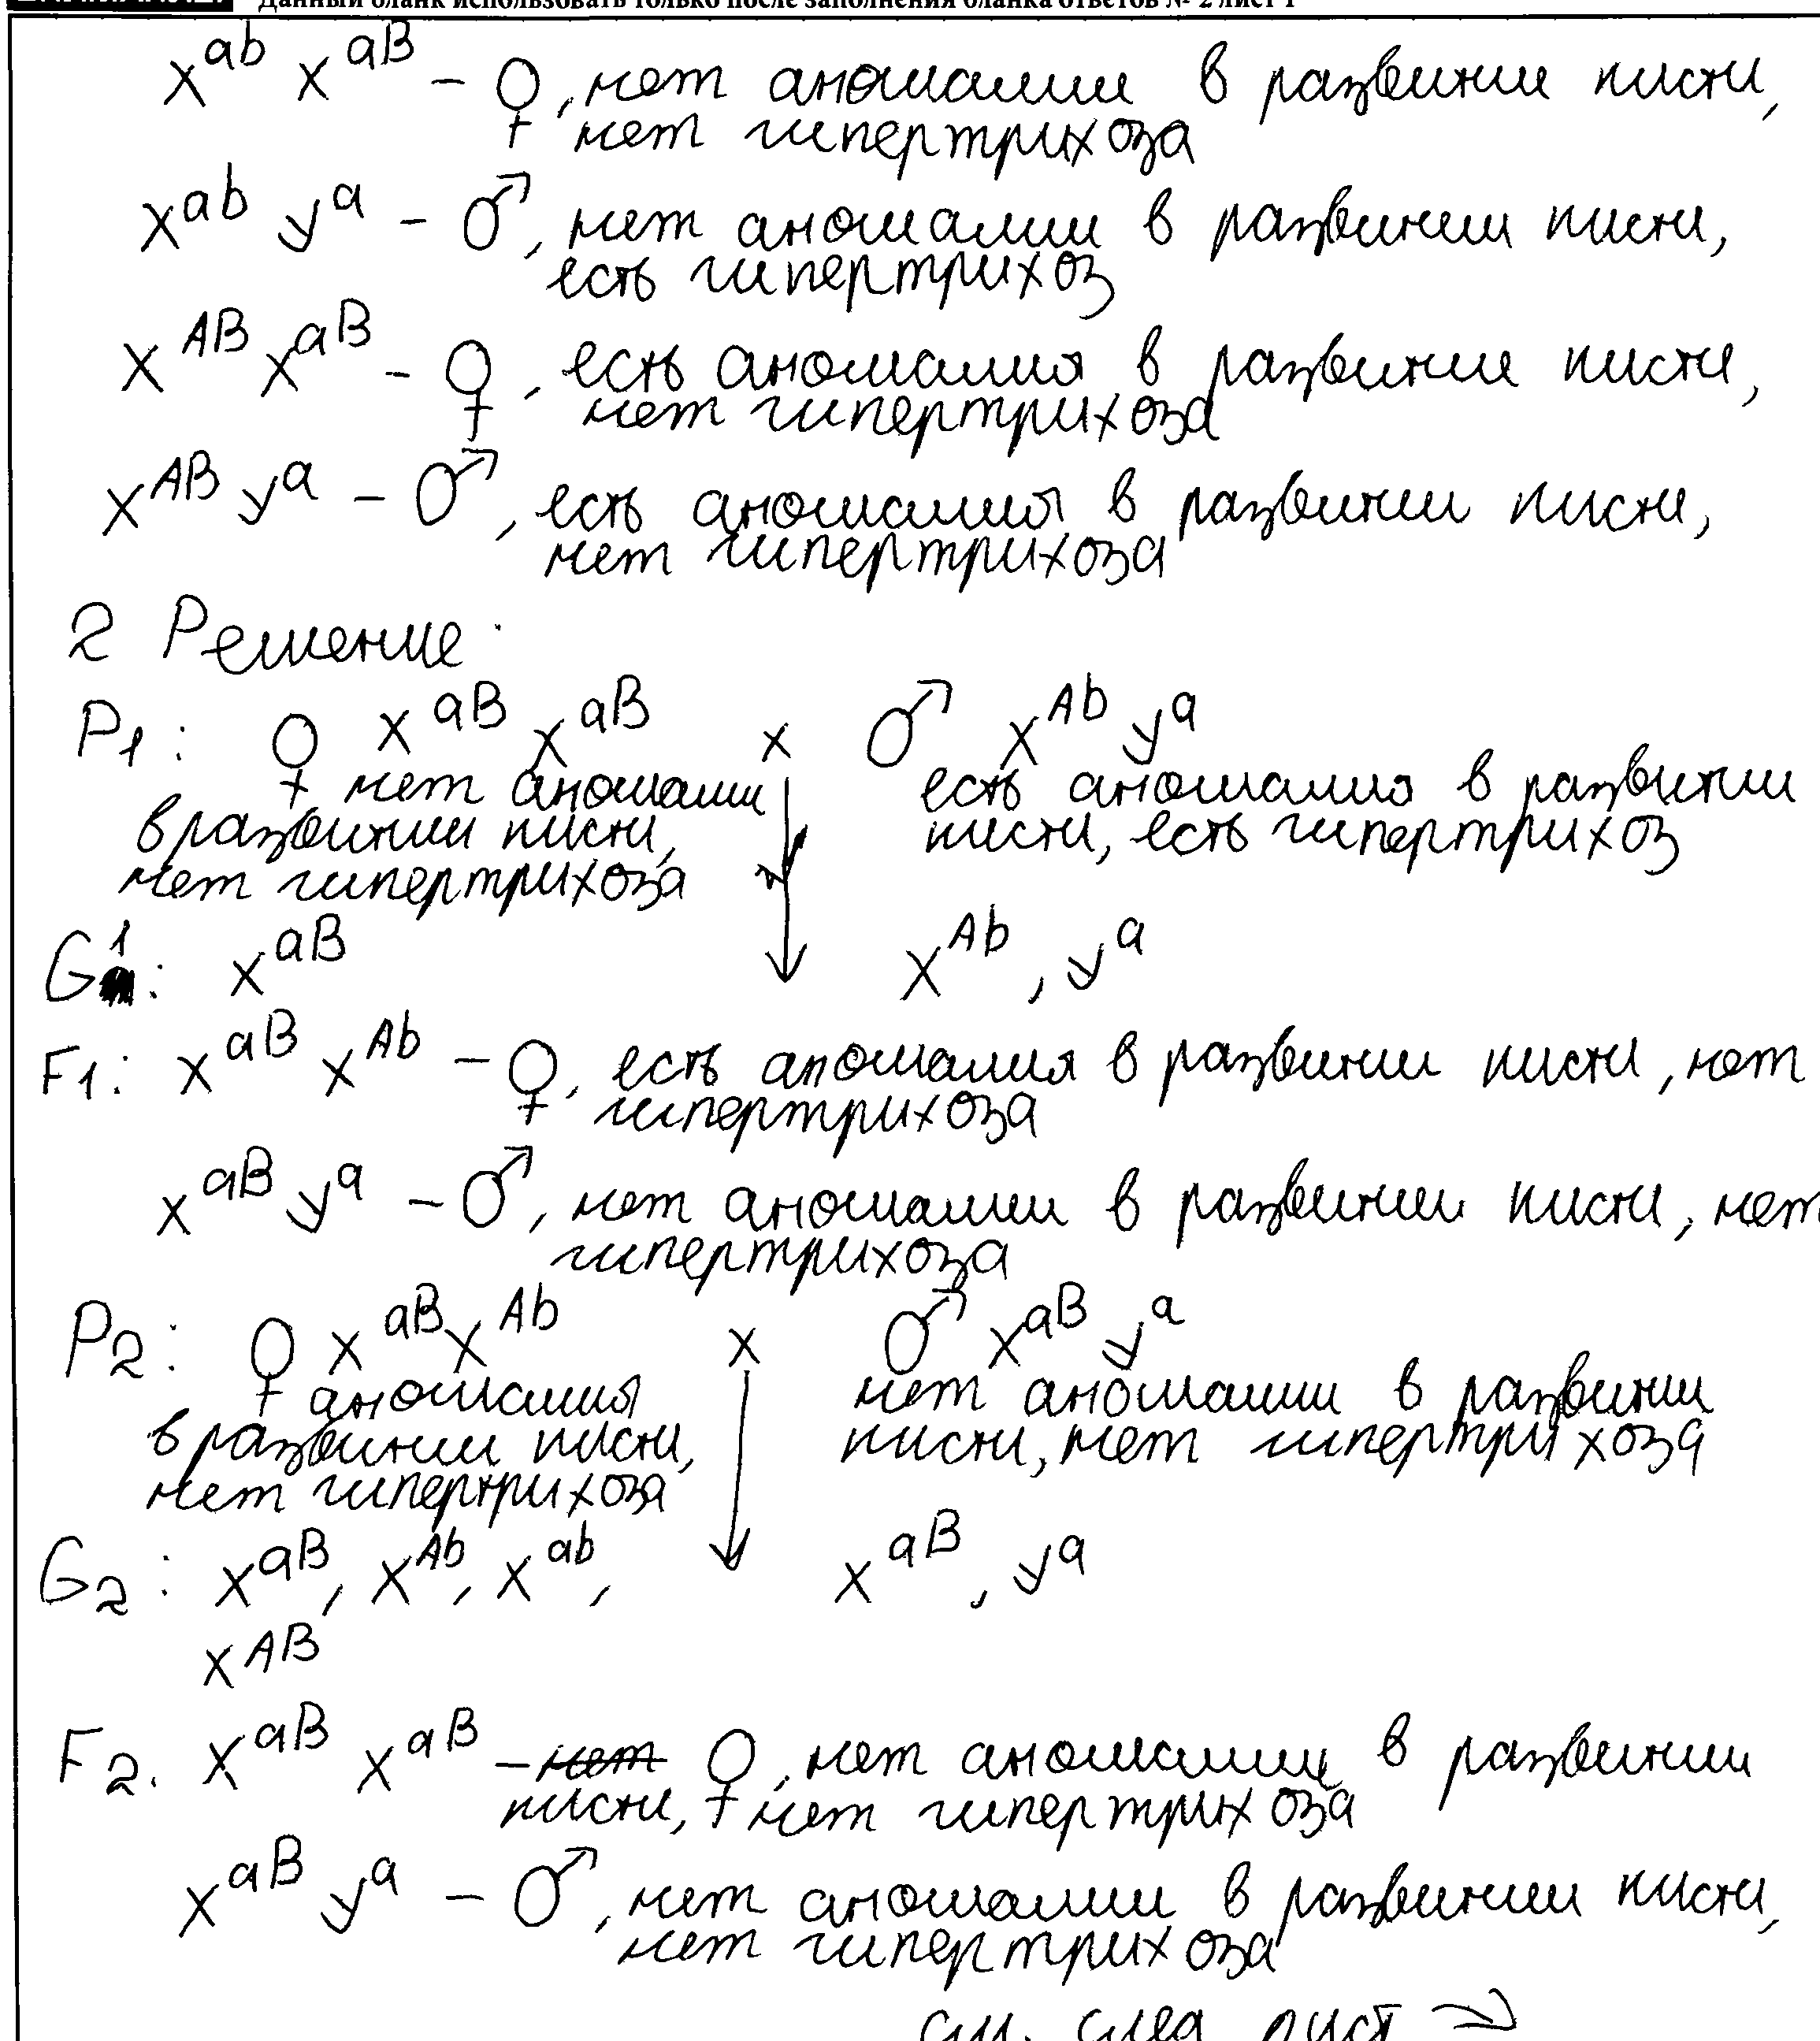 Данный бланк использовать только после заполнения бланка ответов № 2 лист 1
X^ab X^aB – ♀, нет аномалии в развитие кисти,
нет гипертрихоза
X^ab У^a – ♂, нет аномалии в развитии кисти,
есть гипертрихоз
X^AB X^aB – ♀, есть аномалия в развитие кисти,
нет гипертрихоза
X^AB У^a – ♂, есть аномалия в развитии кисти,
нет гипертрихоза
2 Решение:
P1: ♀ X^aB X^aB x ♂ X^Ab У^a
нет аномалии есть аномалия в развитии
в развитии кисти, кисти, есть гипертрихоз
нет гипертрихоза
G1: X^aB X^Ab, У^a
F1: X^aB X^Ab – ♀, есть аномалия в развитии кисти, нет
гипертрихоза
X^aB У^a – ♂, нет аномалии в развитии кисти, нет
гипертрихоза
P2: ♀ X^aB X^Ab x ♂ X^aB У^a
аномалия нет аномалии в развитии
в развитии кисти, кисти, нет гипертрихоза
нет гипертрихоза
G2: X^aB, X^Ab, X^ab, X^aB, У^a
X^AB
F2. X^aB X^aB – нет ♀, нет аномалии в развитии
кисти, нет гипертрихоза
X^aB У^a – ♂, нет аномалии в развитии кисти,
нет гипертрихоза
см. след лист →